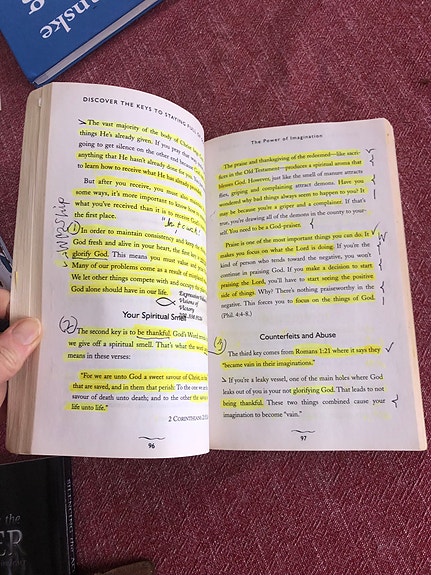 nske
DISCOVER THE KEYS TO STAYING FULL OF
The vast majority of the body of Christ
things He's already given. If you pray that
going to get silence on the other end because
anything that He hasn't already done for you.
to learn how to receive what He has already
But after you receive, you must also
some ways, it's more important to know
what you've received than it is to receive
the first place.
(1) In order to maintain consistency and keep
God fresh and alive in your heart, the first key is
glorify God. This means you must value and
Many of our problems come as a result of
We let other things compete with and occupy the
God alone should have in our life.
Your Spiritual Smell
(2) The second key is to be thankful. God's Word
we give off a spiritual smell. That's what the word
means in these verses:
"For we are unto God a sweet savour of Christ, in
that are saved, and in them that perish: To the one we are
savour of death unto death; and to the other the savour
life unto life."
2 CORINTHIANS 2:
96
Worship
Expression
Visions of
Victory
The Power of Imagination
The praise and thanksgiving of the redeemed—like sacri-
fices in the Old Testament—produces a spiritual aroma that
blesses God. However, just like the smell of manure attracts
flies, griping and complaining attract demons. Have you
wondered why bad things always seem to happen to you? It
may be because you're a griper and a complainer. If that's
you, you're drawing all of the demons in the county to your-
self! You need to be a God-praiser.
Praise is one of the most important things you can do. It
makes you focus on what the Lord is doing. If you're the
kind of person who tends toward the negative, you won't
continue in praising God. If you make a decision to start
praising the Lord, you'll have to start seeing the positive
side of things. Why? There's nothing praiseworthy in the
negative. This forces you to focus on the things of God.
(Phil. 4:4-8.)
Counterfeits and Abuse
(3)
The third key comes from Romans 1:21 where it says they
"became vain in their imaginations."
If you're a leaky vessel, one of the main holes where God
leaks out of you is your not glorifying God. That leads to not
being thankful. These two things combined cause your
imagination to become "vain."
97
the
ER